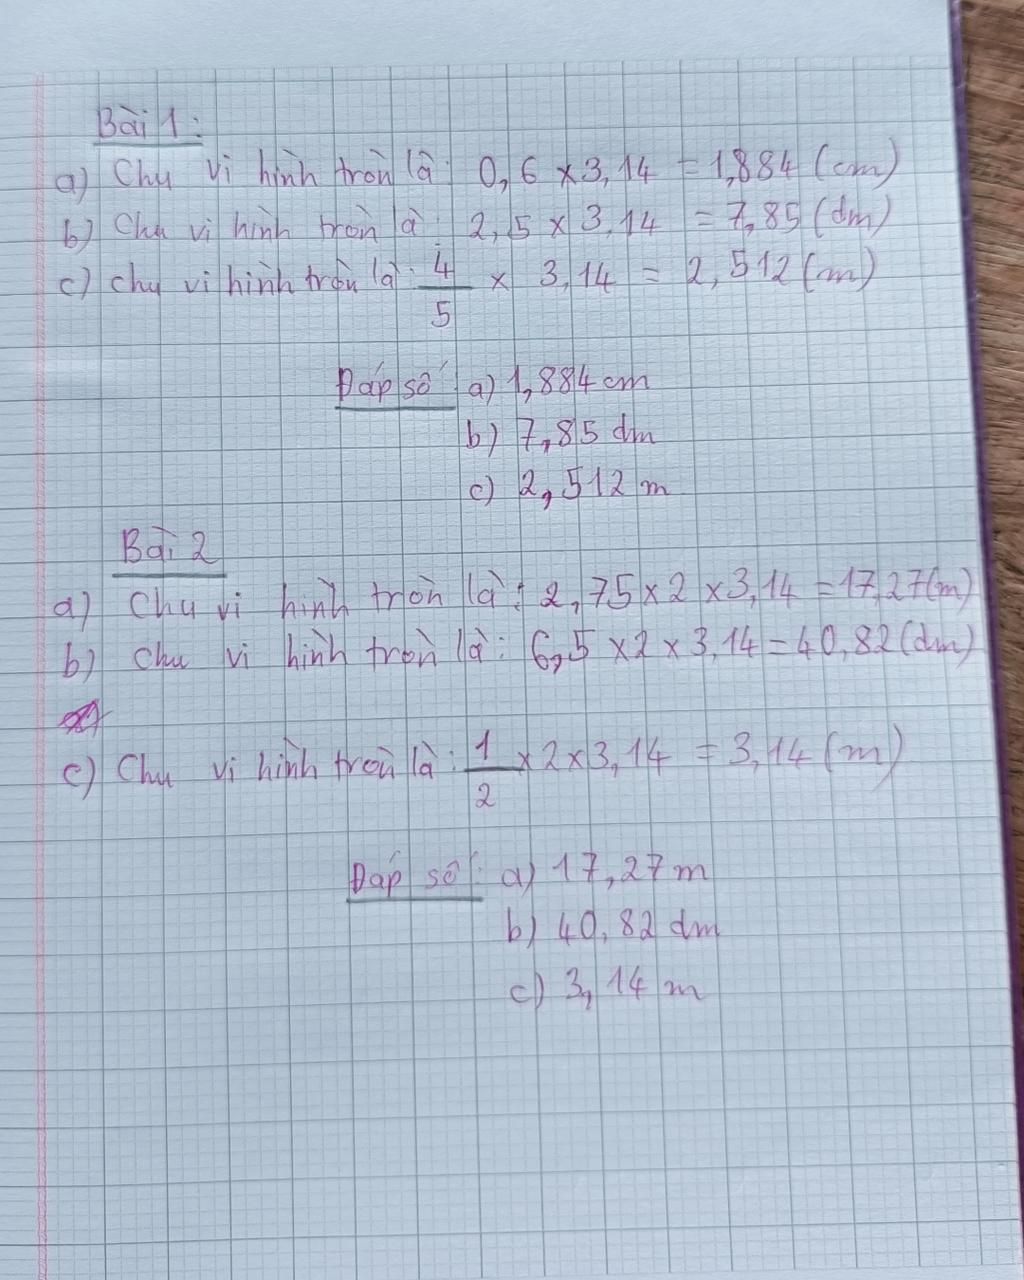 Bài 1:
a) Chu vi hình tròn là: 0,6 x 3,14 = 1,884 (cm)
b) Chu vi hình tròn là: 2,5 x 3,14 = 7,85 (dm)
c) Chu vi hình tròn là: 4/5 x 3,14 = 2,512 (m)
Đáp số: a) 1,884 cm
b) 7,85 dm
c) 2,512 m
Bài 2
a) Chu vi hình tròn là: 2,75 x 2 x 3,14 = 17,27 (m)
b) Chu vi hình tròn là: 6,5 x 2 x 3,14 = 40,82 (dm)
c) Chu vi hình tròn là: 1/2 x 2 x 3,14 = 3,14 (m)
Đáp số: a) 17,27 m
b) 40,82 dm
c) 3,14 m